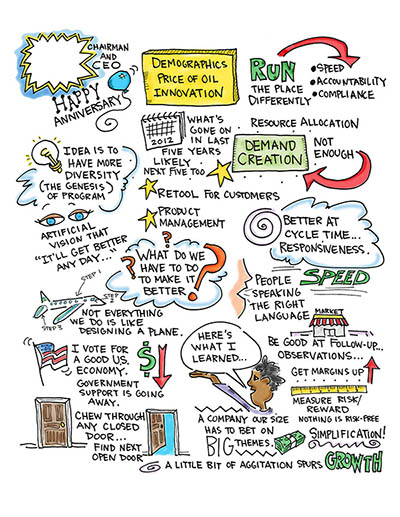 CHAIRMAN
AND
CEO
HAPPY
ANNIVERSARY
DEMOGRAPHICS
PRICE OF OIL
INNOVATION
RUN
THE PLACE
DIFFERENTLY
•SPEED
•ACCOUNTABILITY
•COMPLIANCE
2012
WHAT'S
GONE ON
IN LAST
FIVE YEARS
LIKELY
NEXT FIVE TOO
RESOURCE ALLOCATION
DEMAND
CREATION
NOT
ENOUGH
IDEA IS TO
HAVE MORE
DIVERSITY
(THE GENESIS)
OF PROGRAM
RETOOL FOR CUSTOMERS
PRODUCT
MANAGEMENT
ARTIFICIAL
VISION THAT
"IT'LL GET BETTER
ANY DAY..."
BETTER AT
CYCLE TIME...
RESPONSIVENESS.
WHAT DO WE
HAVE TO DO
TO MAKE IT
BETTER
?
?
?
PEOPLE
SPEAKING
THE RIGHT
LANGUAGE
SPEED
STEP 1
STEP 3
NOT EVERYTHING
WE DO IS LIKE
DESIGNING A PLANE.
MARKET
HERE'S
WHAT I
LEARNED...
BE GOOD AT FOLLOW-UP...
OBSERVATIONS...
I VOTE FOR
A GOOD U.S.
ECONOMY.
$
GOVERNMENT
SUPPORT IS GOING
AWAY.
GET MARGINS UP
MEASURE RISK/
REWARD
NOTHING IS RISK-FREE
CHEW THROUGH
ANY CLOSED
DOOR...
FIND NEXT
OPEN DOOR
A COMPANY OUR SIZE
HAS TO BET ON
BIG THEMES.
SIMPLIFICATION!
A LITTLE BIT OF AGGITATION SPURS GROWTH